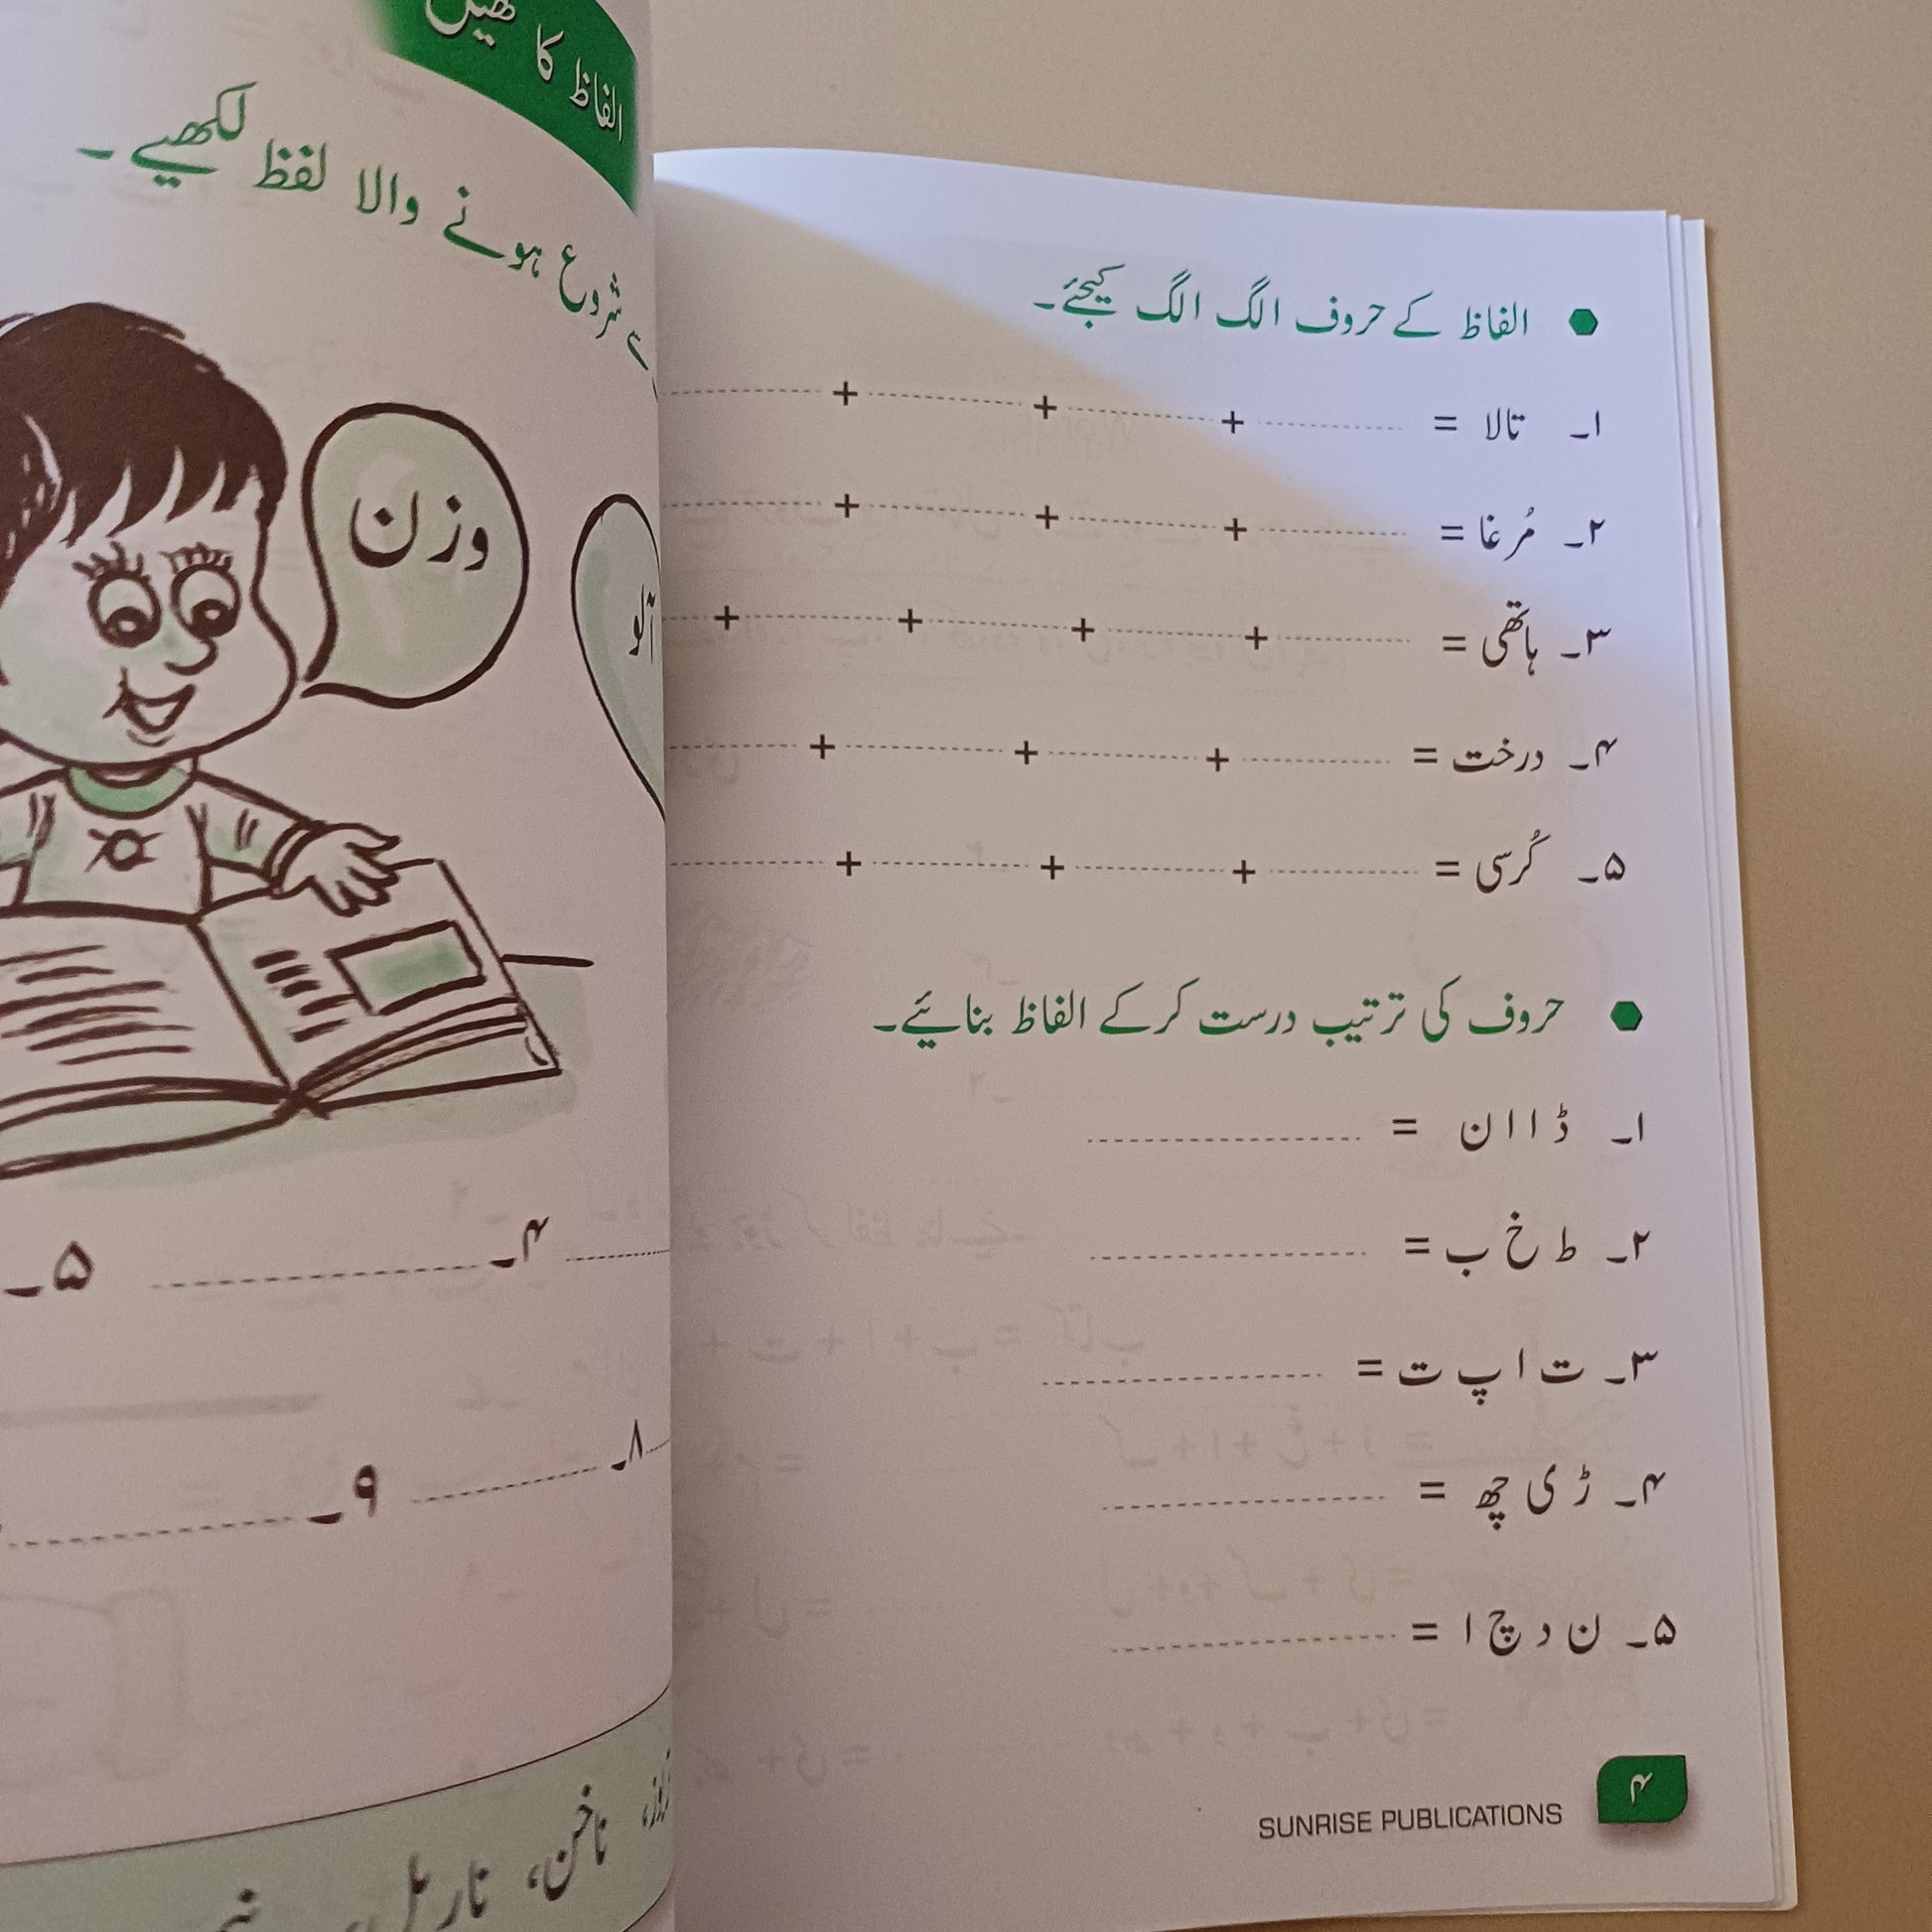 الفاظ کے حروف الگ الگ کیجئے۔
۱۔ تالا = + + +
۲۔ مُرغا = + + +
۳۔ ہاتھی = + + + +
۴۔ درخت = + + +
۵۔ کُرسی = + + +
حروف کی ترتیب درست کرکے الفاظ بنائیے۔
۱۔ ڈ ا ا ن =
۲۔ ط خ ب =
۳۔ ت ا پ ت =
۴۔ ڑ ی چھ =
۵۔ ن د چ ا =
۴
SUNRISE PUBLICATIONS
الفاظ کا کھیل
شروع ہونے والا لفظ لکھیے۔
وزن
آلو
۴۔ ۵۔
۸۔ ۹۔
ناخن، ناریل،